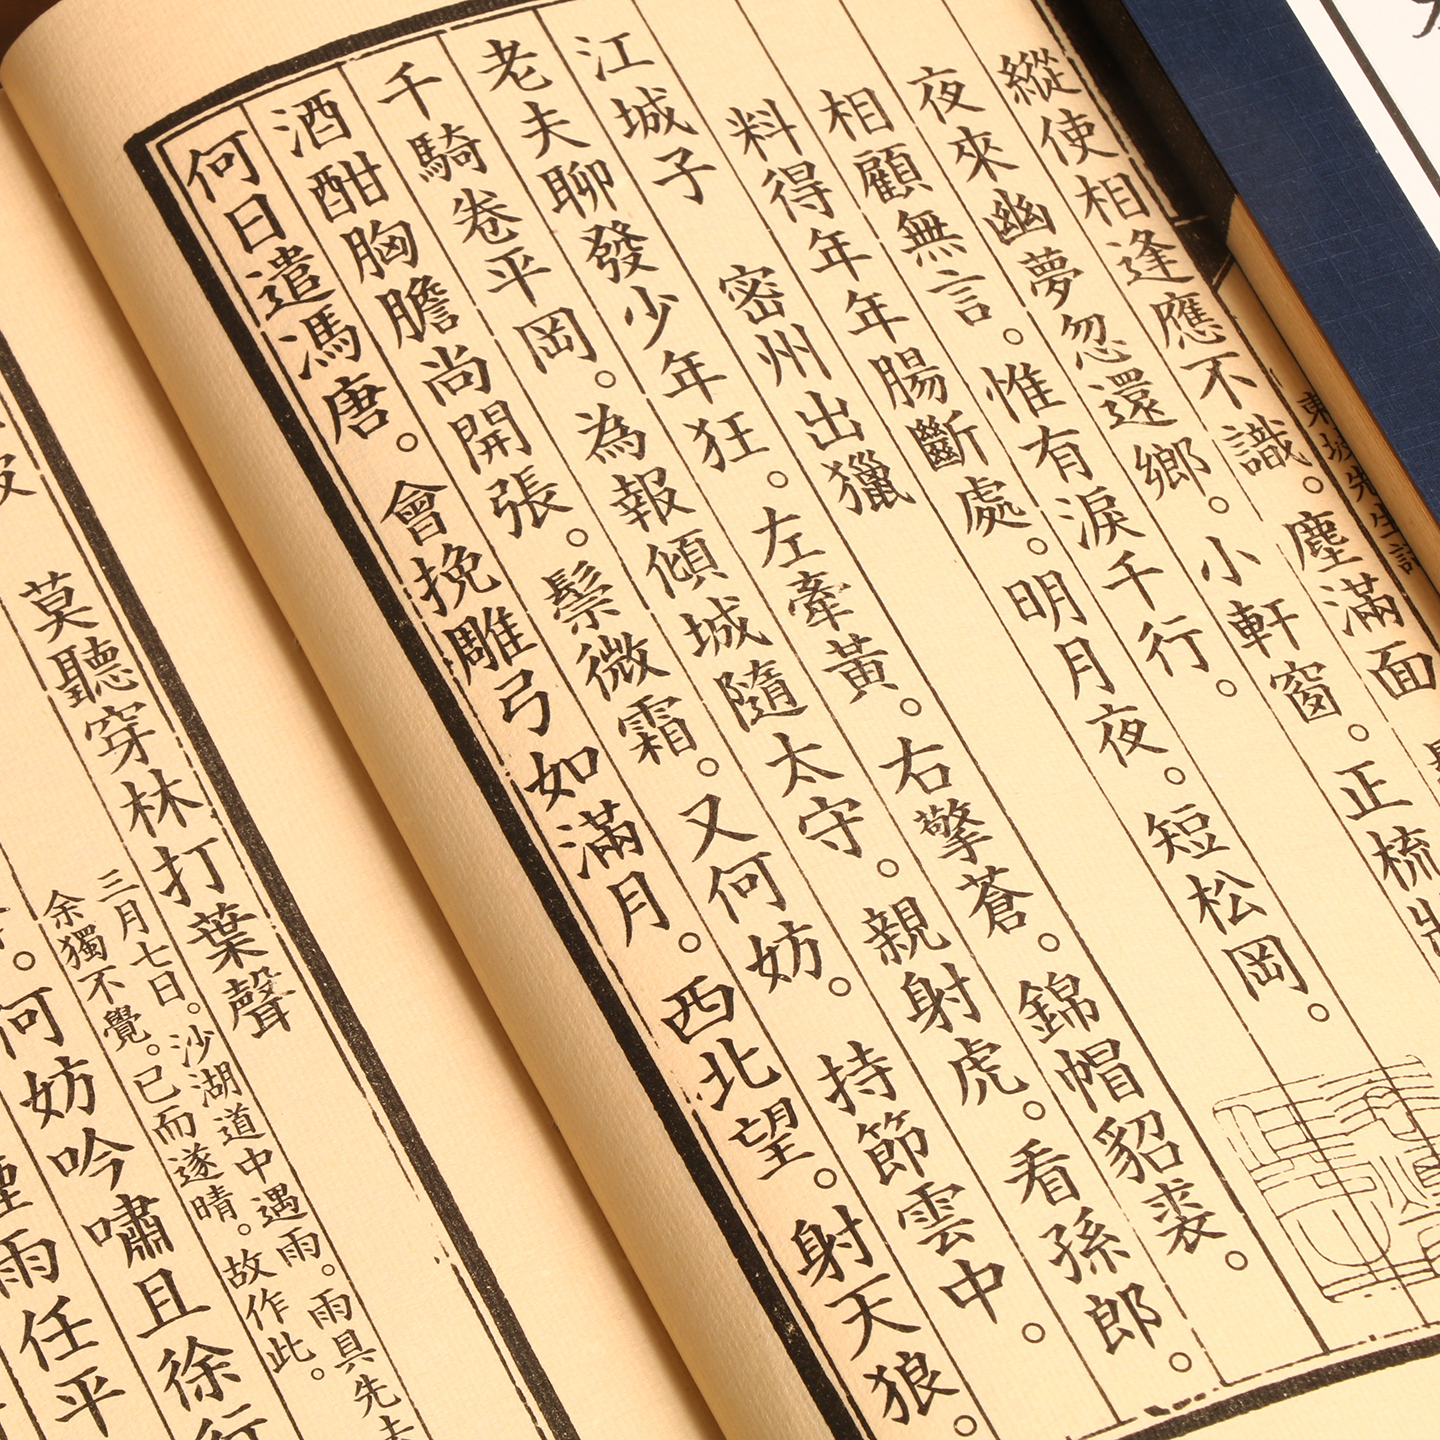 東坡先生
縱使相逢應不識。塵滿面
夜來幽夢忽還鄉。小軒窗。正梳
相顧無言。惟有淚千行。
料得年年腸斷處。明月夜。短松岡。
江城子 密州出獵
老夫聊發少年狂。左牽黃。右擎蒼。錦帽貂裘。
千騎卷平岡。為報傾城隨太守。親射虎。看孫郎。
酒酣胸膽尚開張。鬢微霜。又何妨。持節雲中。
何日遣馮唐。會挽雕弓如滿月。西北望。射天狼。
莫聽穿林打葉聲
三月七日。沙湖道中遇雨。雨具先去
余獨不覺。已而遂晴。故作此。
何妨吟嘯且徐行
雨任平